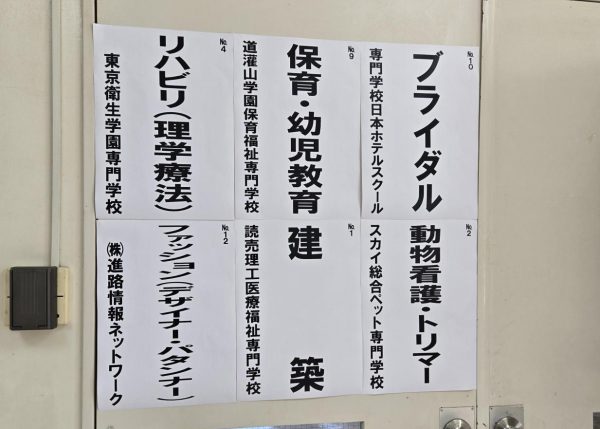 №10
ブライダル
専門学校日本ホテルスクール
№9
保育・幼児教育
道灌山学園保育福祉専門学校
№4
リハビリ(理学療法)
東京衛生学園専門学校
№2
動物看護・トリマー
スカイ総合ペット専門学校
№1
建築
読売理工医療福祉専門学校
№12
ファッション(デザイナー・パタンナー)
㈱進路情報ネットワーク